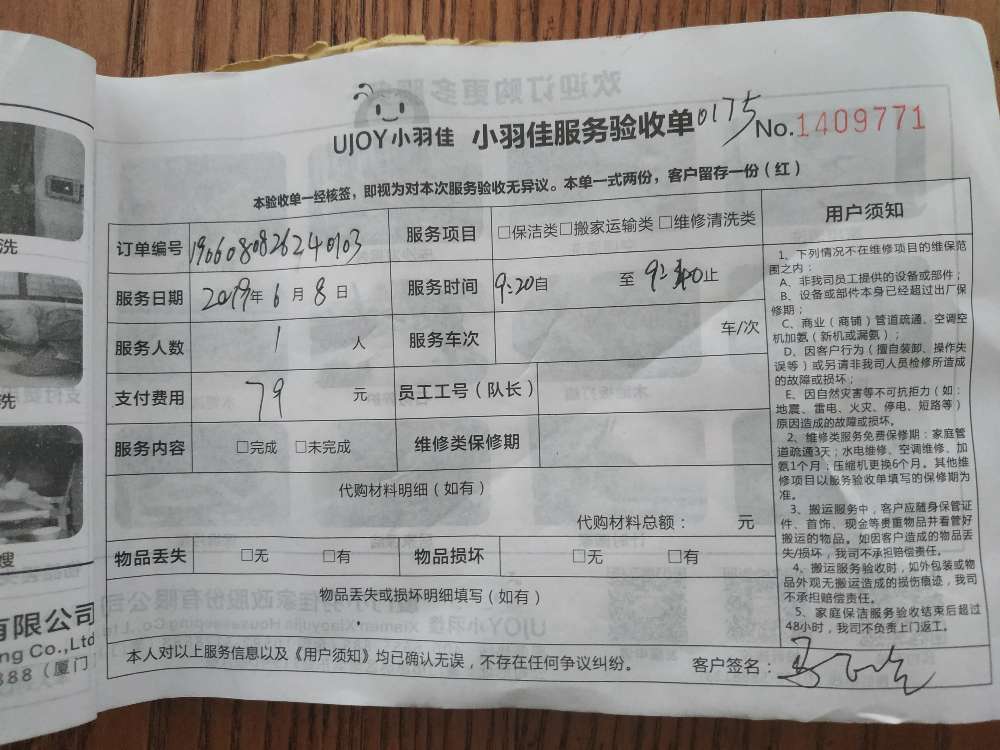 UJOY小羽佳 小羽佳服务验收单0175 No.1409771
本验收单一经核签，即视为对本次服务验收无异议。本单一式两份，客户留存一份（红）
订单编号 190608082624003 服务项目 □保洁类□搬家运输类□维修清洗类
服务日期 2019年6月8日 服务时间 9:20自 至 9:40止
服务人数 1 人 服务车次 车/次
支付费用 79 元 员工工号（队长）
服务内容 □完成 □未完成 维修类保修期
代购材料明细（如有）
代购材料总额： 元
物品丢失 □无 □有 物品损坏 □无 □有
物品丢失或损坏明细填写（如有）
本人对以上服务信息以及《用户须知》均已确认无误，不存在任何争议纠纷。 客户签名：
用户须知
1、下列情况不在维修项目的维保范
围之内：
A、非我司员工提供的设备或部件；
B、设备或部件本身已经超过出厂保
修期；
C、商业（商铺）管道疏通、空调空
机加氨（新机或漏氨）；
D、因客户行为（擅自装卸、操作失
误等）或另请非我司人员检修所造成
的故障或损坏；
E、因自然灾害等不可抗拒力（如：
地震、雷电、火灾、停电、短路等）
原因造成的故障或损坏。
2、维修类服务免费保修期：家庭管
道疏通3天；水电维修、空调维修、加
氨1个月；压缩机更换6个月。其他维
修项目以服务验收单填写的保修期为
准。
3、搬运服务中，客户应随身保管证
件、首饰、现金等贵重物品并看管好
搬运的物品。如因客户造成的物品丢
失/损坏，我司不承担赔偿责任。
4、搬运服务验收时，如外包装或物
品外观无搬运造成的损伤痕迹，我司
不承担赔偿责任。
5、家庭保洁服务验收结束后超过
48小时，我司不负责上门返工。
洗
洗
嫂
有限公司
ng Co.,Ltd
888（厦门